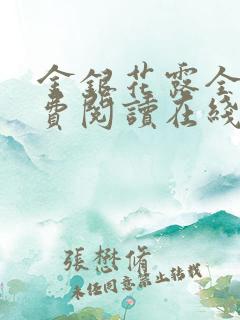 金銀花露全
費閱讀在綫
張懋脩
未經同意禁止轉載